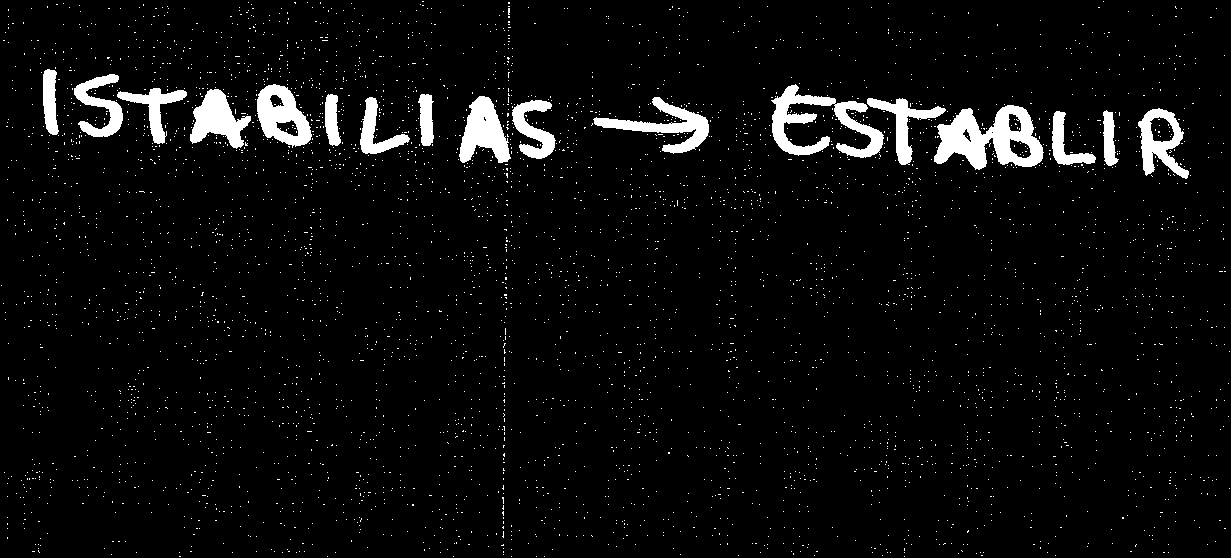 ISTABILIAS → ESTABLIR